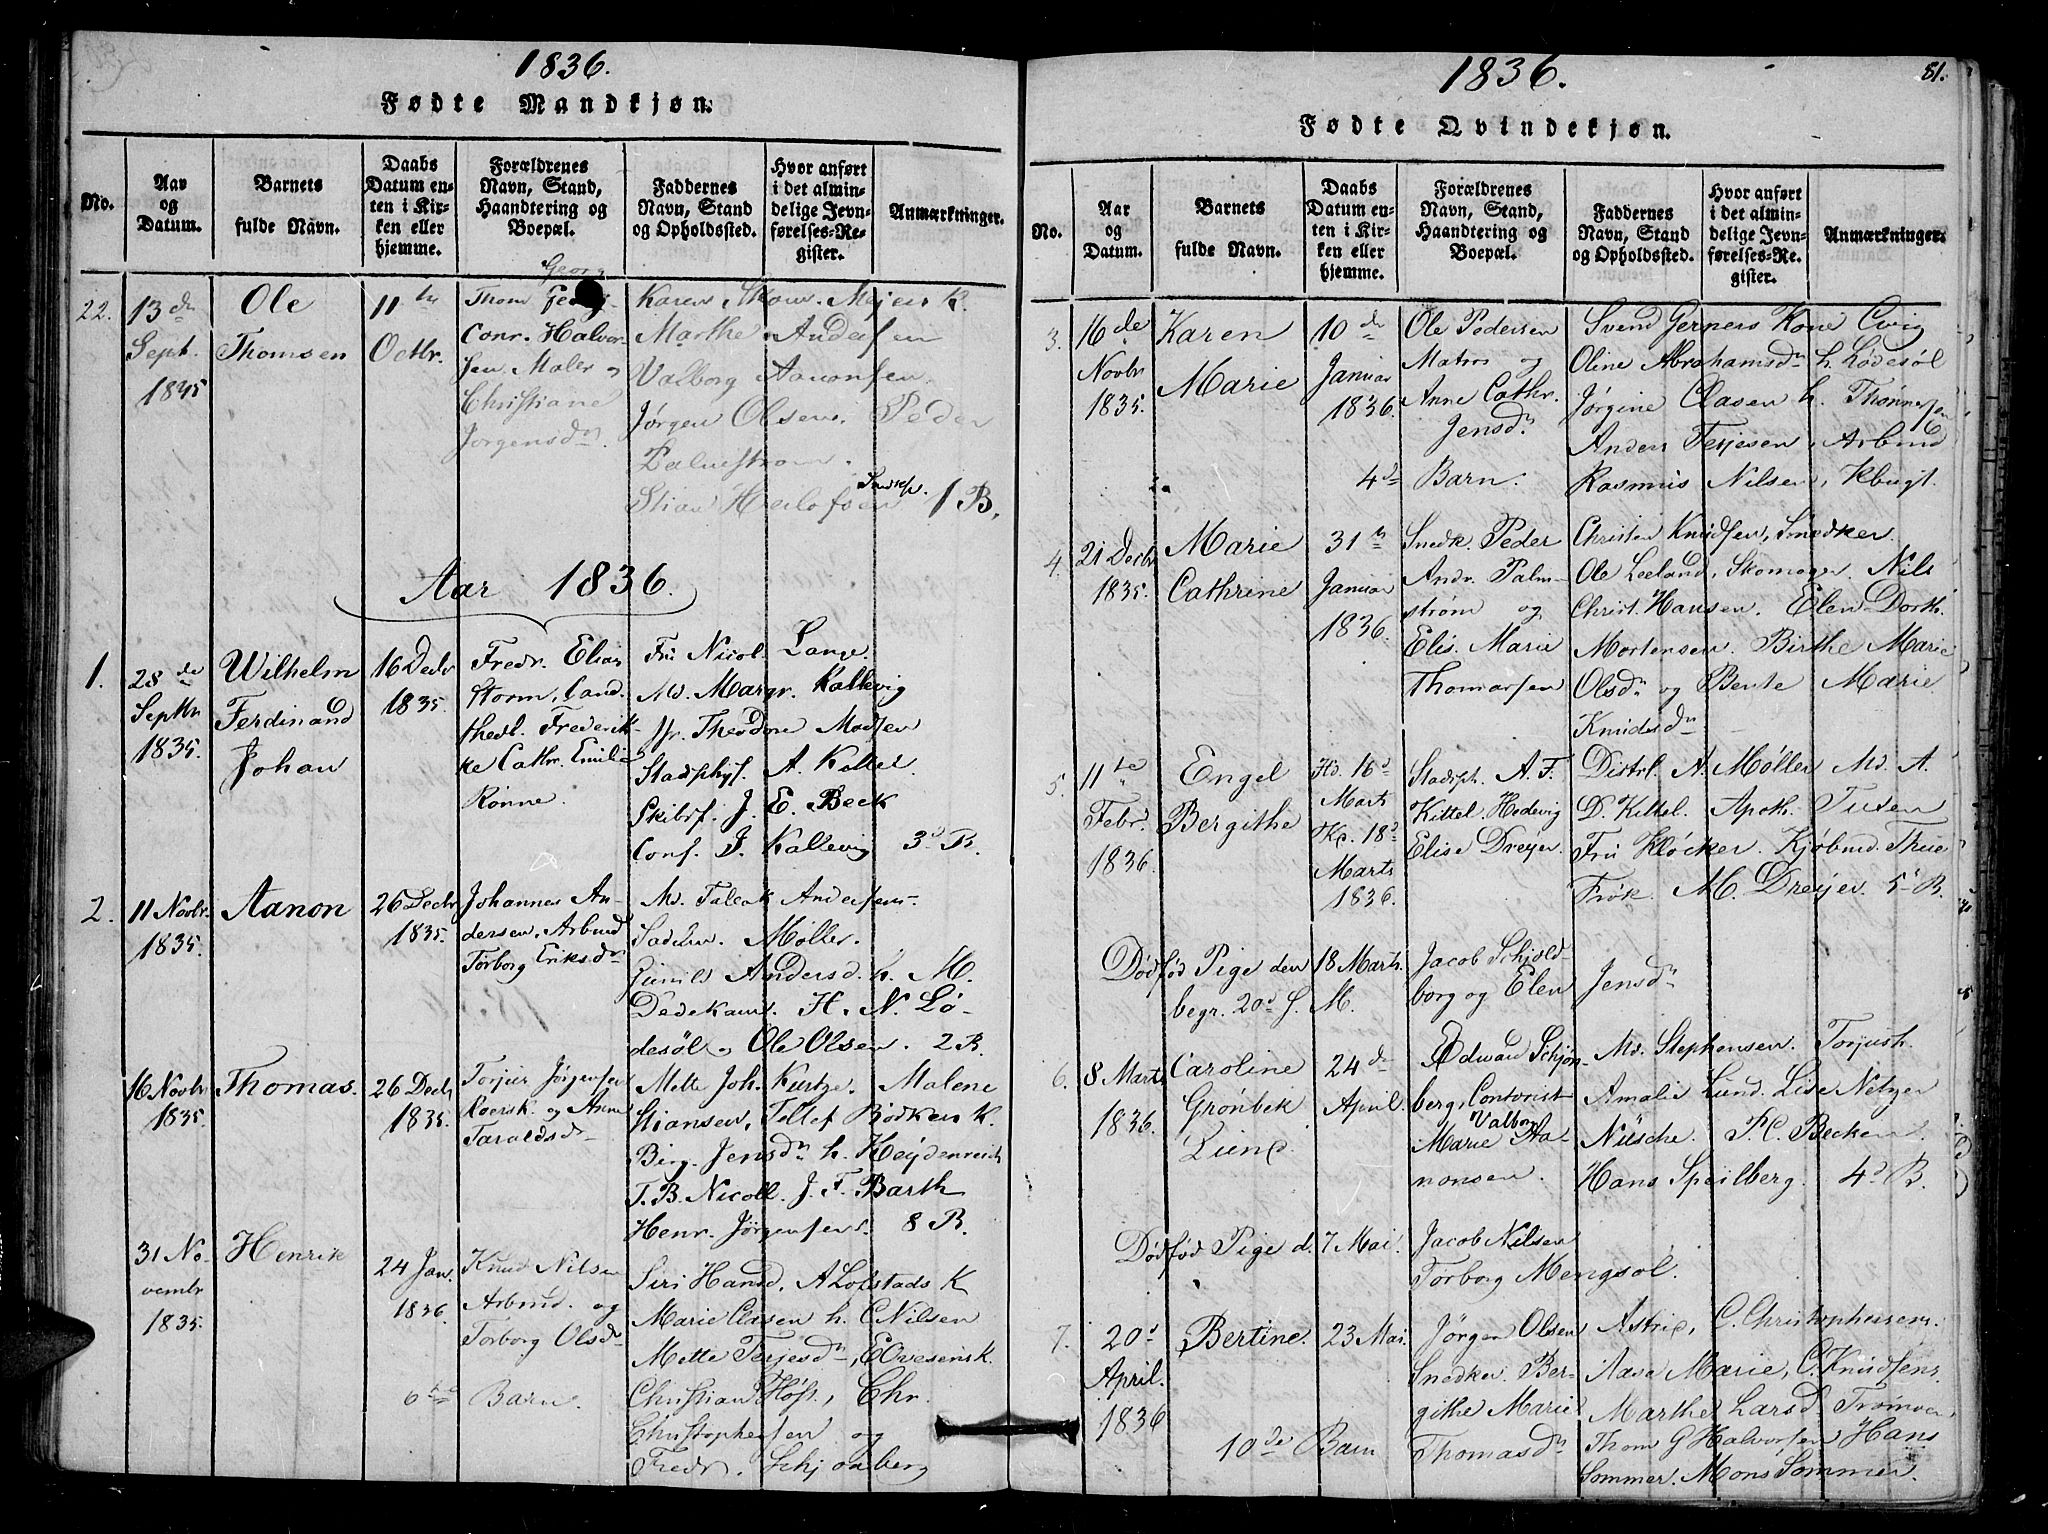 1836.
Fødte Mandkjøn.
No.
Aar
og
Datum.
Barnets
fulde Navn.
Daabs
Datum en-
ten i Kir-
ken eller
hjemme.
Forældrenes
Navn, Stand,
Haandtering og
Boepæl.
Faddernes
Navn, Stand
og Opholdssted.
Hvor anført
i det almin-
delige Jevn-
førelses-Re-
gister.
Anmærkninger.
22.
13de
Sept.
1835
Ole
Thomsen
11te
Octbr.
Georg
Thom
Conr. Halvor-
sen Maler og
Christiane
Jørgensdn
Karen Skow. Mejers K.
Marthe Andersen
Valborg Aanonsen.
Jørgen Olsen. Peder
Palmestrøm.
Stian Herlofsen 1 B.
Aar 1836.
1.
28de
Septbr
1835.
Wilhelm
Ferdinand
Johan
16 Decbr
1835.
Fredr. Elias
Storm, Cand.
theol. Frederik-
ke Cathr. Emilie
Rønne.
Fru Nicol. Lange.
Md. Margr. Kallevig
Jfr. Theodora Madsen
Stadsphys. A. Kittel.
Skibsf. J. E. Beck
Conf. J. Kallevig 3d B.
2.
11 Novbr.
1835.
Aanon
26 Decbr
1835.
Johannes An-
dersen, Arbmd
Torborg Eriksdn
Md. Falcak Andersens-
Sadelm. Møller.
Gunild Andersd. h. M.
Dedekam. H. N. Lø-
desöl og Ole Olsen. 2 B.
16 Novbr
1835.
Thomas.
26 Decbr
1835.
Torjus Jørgensen
Roersk. og Anne
Taraldsdr
Mette Joh. Kurtze. Malene
Stiansen, Tellef Bödkers K.
Birg. Jensdn h. Heydenreich
T. B. Nicoll. J. F. Barth
Henr. Jørgensen. 8 B.
31 No-
vembr
1835.
Henrik
24 Jan.
1836.
Knud Nilsen
Arbmd. og
Torborg Olsdn
6te Barn.
Siri Hansd. A Lofstads K
Marie Clasen h. C Nilsen
Mette Terjesdn, E Ovesens K.
Christian Høst, Chr.
Christophersen og
Fredr. Schjønberg
1836.
81.
Fødte Qvindekjøn.
No.
Aar
og
Datum.
Barnets
fulde Navn.
Daabs
Datum en-
ten i Kir-
ken eller
hjemme.
Forældrenes
Navn, Stand,
Haandtering og
Boepæl.
Faddernes
Navn, Stand
og Opholdssted.
Hvor anført
i det almin-
delige Jevn-
førelses-Re-
gister.
Anmærkninger.
3.
16de
Novbr
1835.
Karen
Marie
10de
Januar
1836.
Ole Pedersen
Matros og
Anne Cathr.
Jensdn
4de Barn.
Svend Gerners Kone
Oline Abrahamsdn h. Lødesöl
Jørgine Clasen h. Thønnesen
Anders Terjesen, Arbmd
Rasmus Nilsen, Kbugt.
4.
21 Decbr
1835.
Marie
Cathrine
31te
Januar
1836.
Snedk. Peder
Andr. Palm-
strøm og
Elis. Marie
Thomassen
Christen Knudsen, Snedker.
Ole Leeland, Skomager. Nils
Christ. Hansen. Elen Dorth.
Mortensen. Birthe Marie
Olsdn og Bente Marie
Knudsdn
5.
11te
Febr.
1836.
Engel
Bergithe
Hd. 16d
Marts
Kc. 18d
Marts
1836.
Stadsph. A. F.
Kittel. Hedevig
Elise Dreyer.
Distrl. A. Møller Md. A.
D. Kittel. Apoth. Tuxen
Fru Kløcker. Kjøbmd. Thue
Frøk. M. Dreyer. 5te B.
Dødfød Pige den 18 Marts.
begr. 20d s. M.
Jacob Schjold-
borg og Elen Jensdn
6.
8 Marts
1836.
Caroline
Grønbek
Lund.
24de
April.
Edward Schjøn-
berg, Contorist
Valborg
Marie Aa-
nonsen.
Md. Stephensen. Torjush.
Amalie Lund. Lise Netzer
Nüsche. P. C. Becken.
Hans Speilberg. 4d B.
Dødfød Pige d. 7 Mai.
Jacob Nilsen
Torborg Mengsöl.
7.
20d
April.
1836
Bertine.
23 Mai.
Jørgen Olsen
Snedker. Ber-
githe Marie
Thomasdn
10de Barn
Astrid, C. Christophersens.
Aase Marie, C. Knudsens
Marthe Larsd Tromøe,
Thom G Halvorsen Hans
Sommer. Mons Sommer.